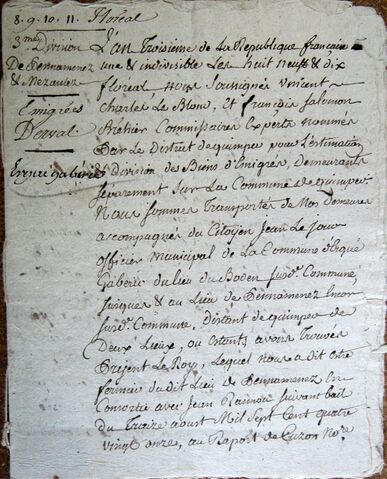 8. 9. 10. 11. floreal
3me Division
De Pennamenez
& Mezanlez
Emigrés
Derval
Ergué gaberic
L'an Troisieme de La Republique française
une & indivisible Les huit neuf & dix
floreal nous soussignés vincent
Charles Le Blond, Et françois salomon
Brehier Commissaires Experts nommés
par Le District de quimper pour L'estimation
& division des Biens d'Emigrés, demeurants
separement sur La Commune de quimper
Nous sommes Transportés de Nos demeures
accompagnés du Citoyen Jean Le Jour
officier Municipal de La Commune d'Ergué
Gaberic du Lieu du Boden susd. Commune,
jusques & au Lieu de Pennamenez En
susd. Commune, Distant de quimper de
Deux Lieux, ou Estants avons Trouvés
Present Le Roy, Lequel nous a dit Estre
fermier du dit Lieu de Pennamenez En
Consortie avec Jean suivant bail
du Traize aoust Mil Sept Cent quatre
vingt onze, au Raport de Cuzon Nore